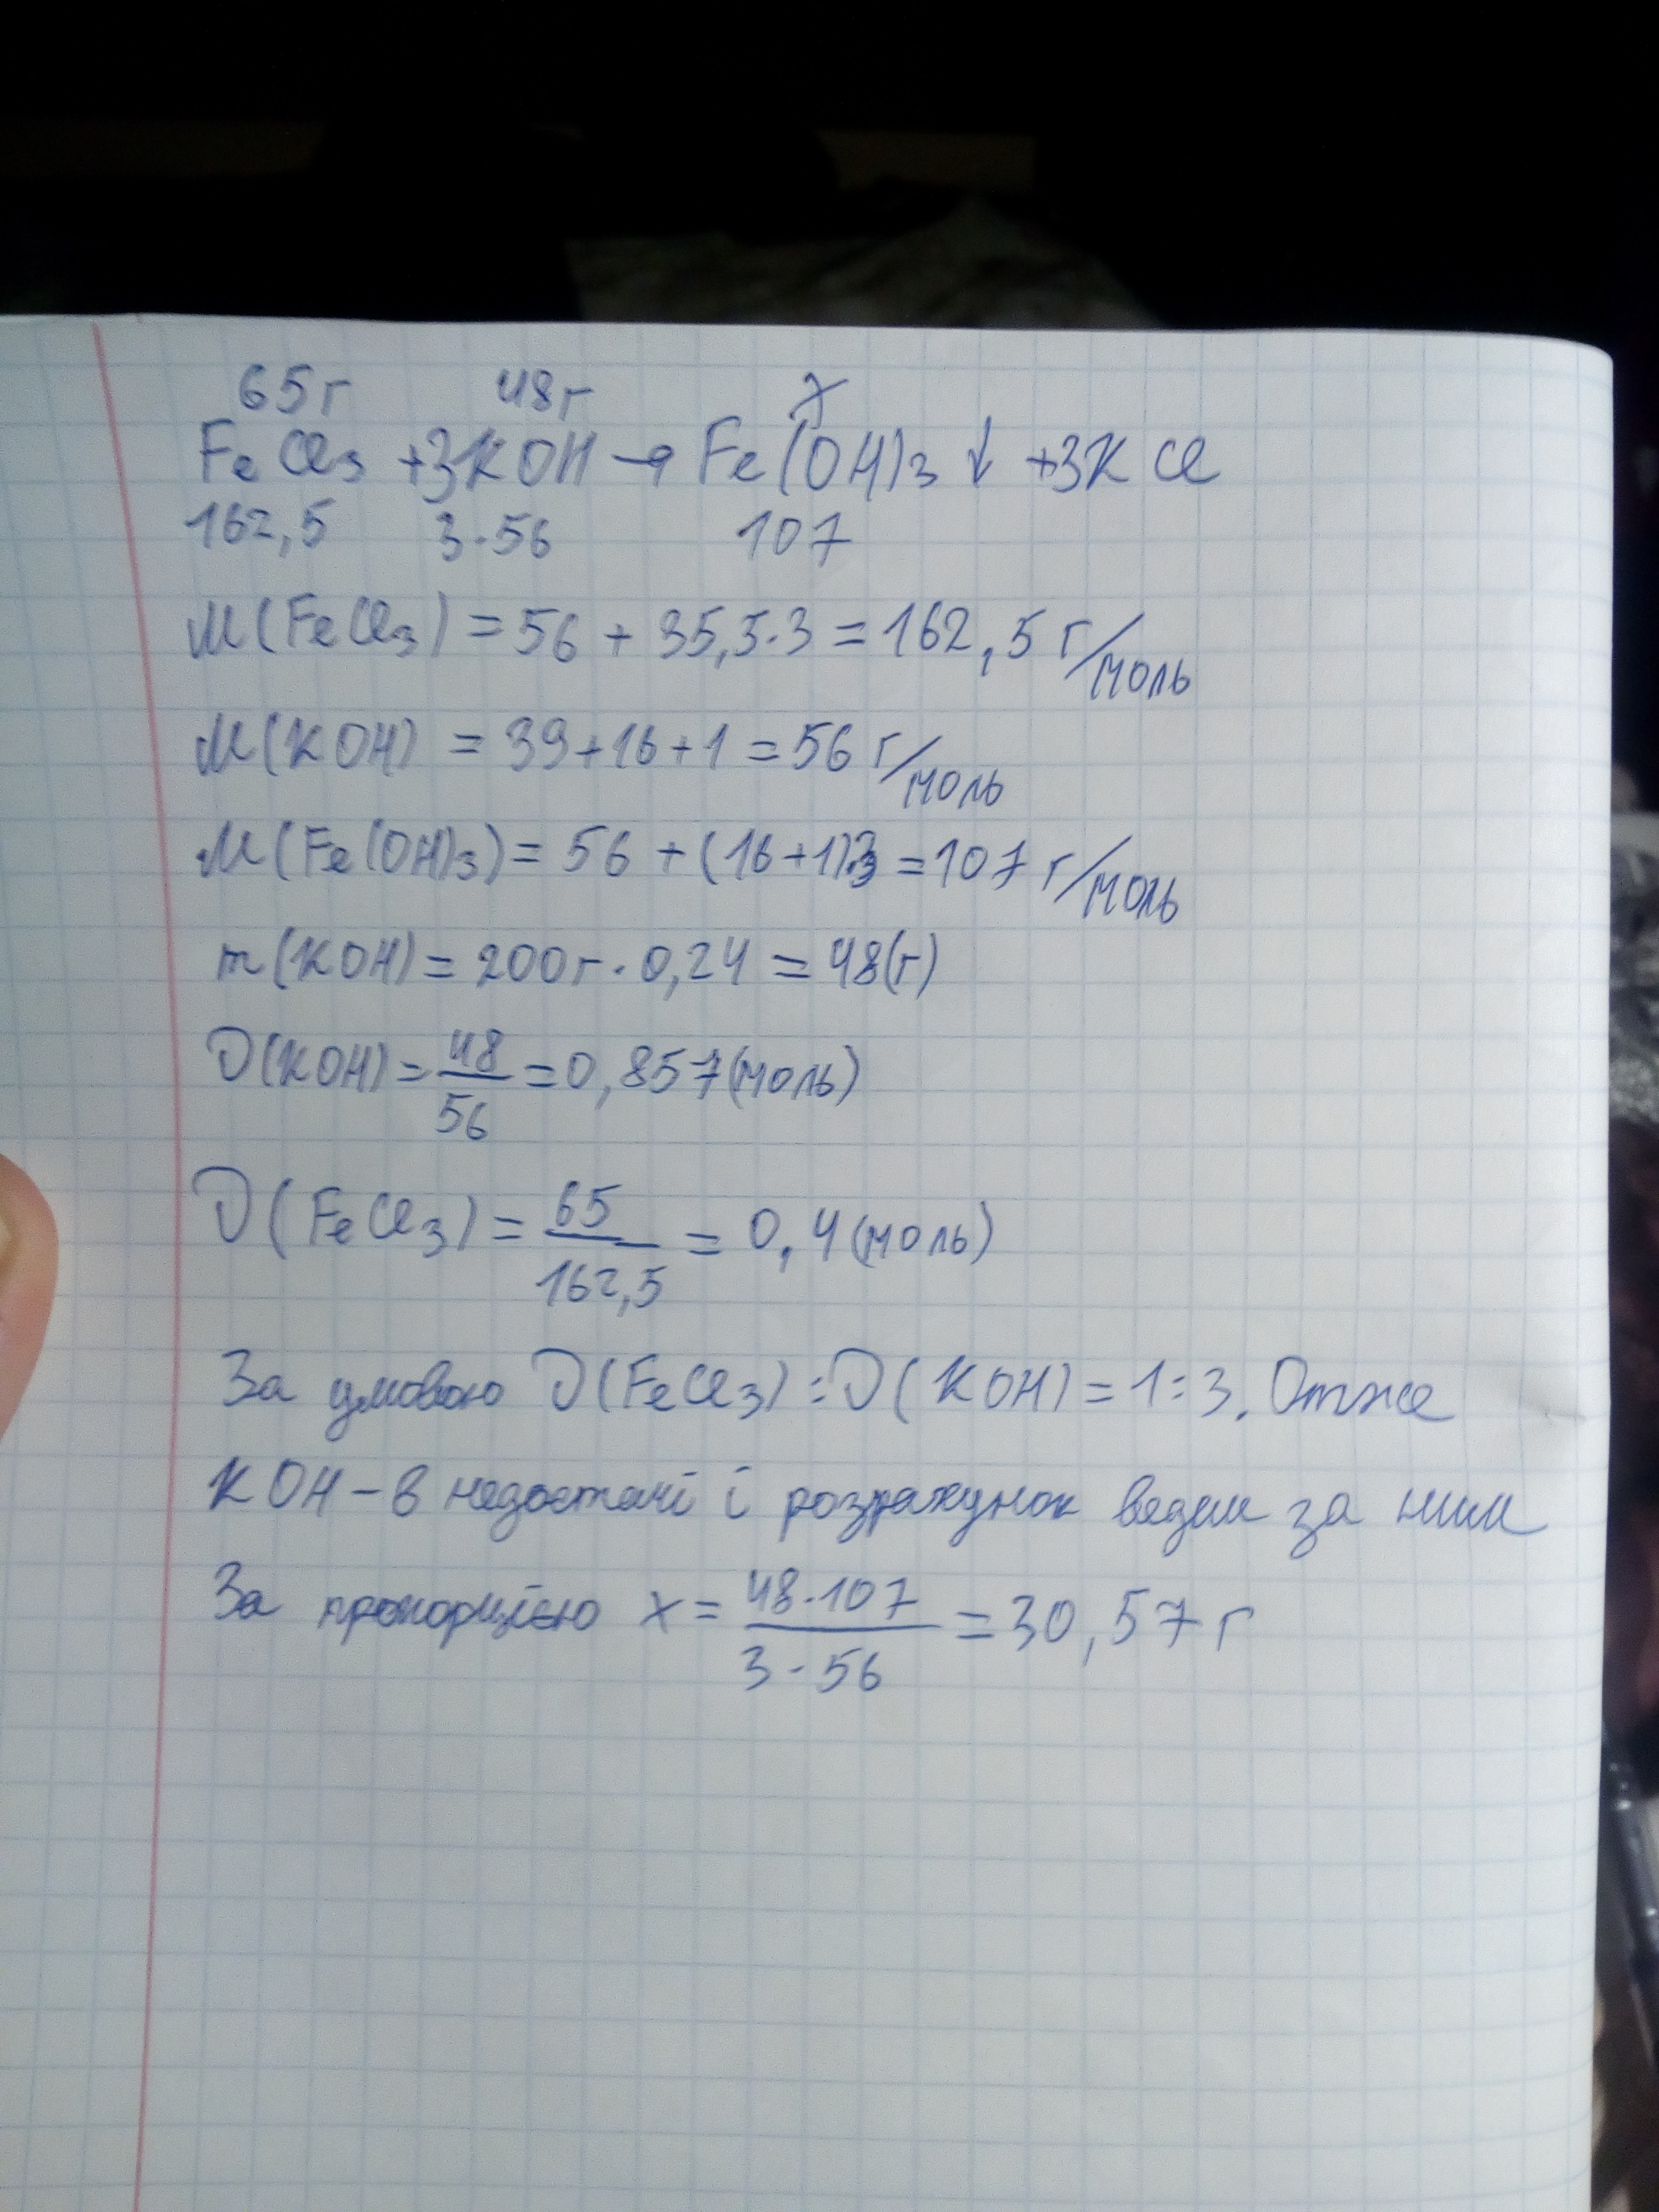 65г 48г x
FeCl₃ +3KOH → Fe(OH)₃ ↓ +3KCl
162,5 3·56 107
M(FeCl₃) = 56 + 35,5·3 = 162,5 г/моль
M(KOH) = 39+16+1 = 56 г/моль
M(Fe(OH)₃) = 56 + (16+1)·3 = 107 г/моль
m(KOH) = 200г · 0,24 = 48(г)
υ(KOH) = 48/56 = 0,857(моль)
υ(FeCl₃) = 65/162,5 = 0,4(моль)
За умовою υ(FeCl₃) : υ(KOH) = 1:3. Отже
KOH – в недостачі і розрахунок ведем за ним
За пропорцією x = 48·107/3·56 = 30,57 г